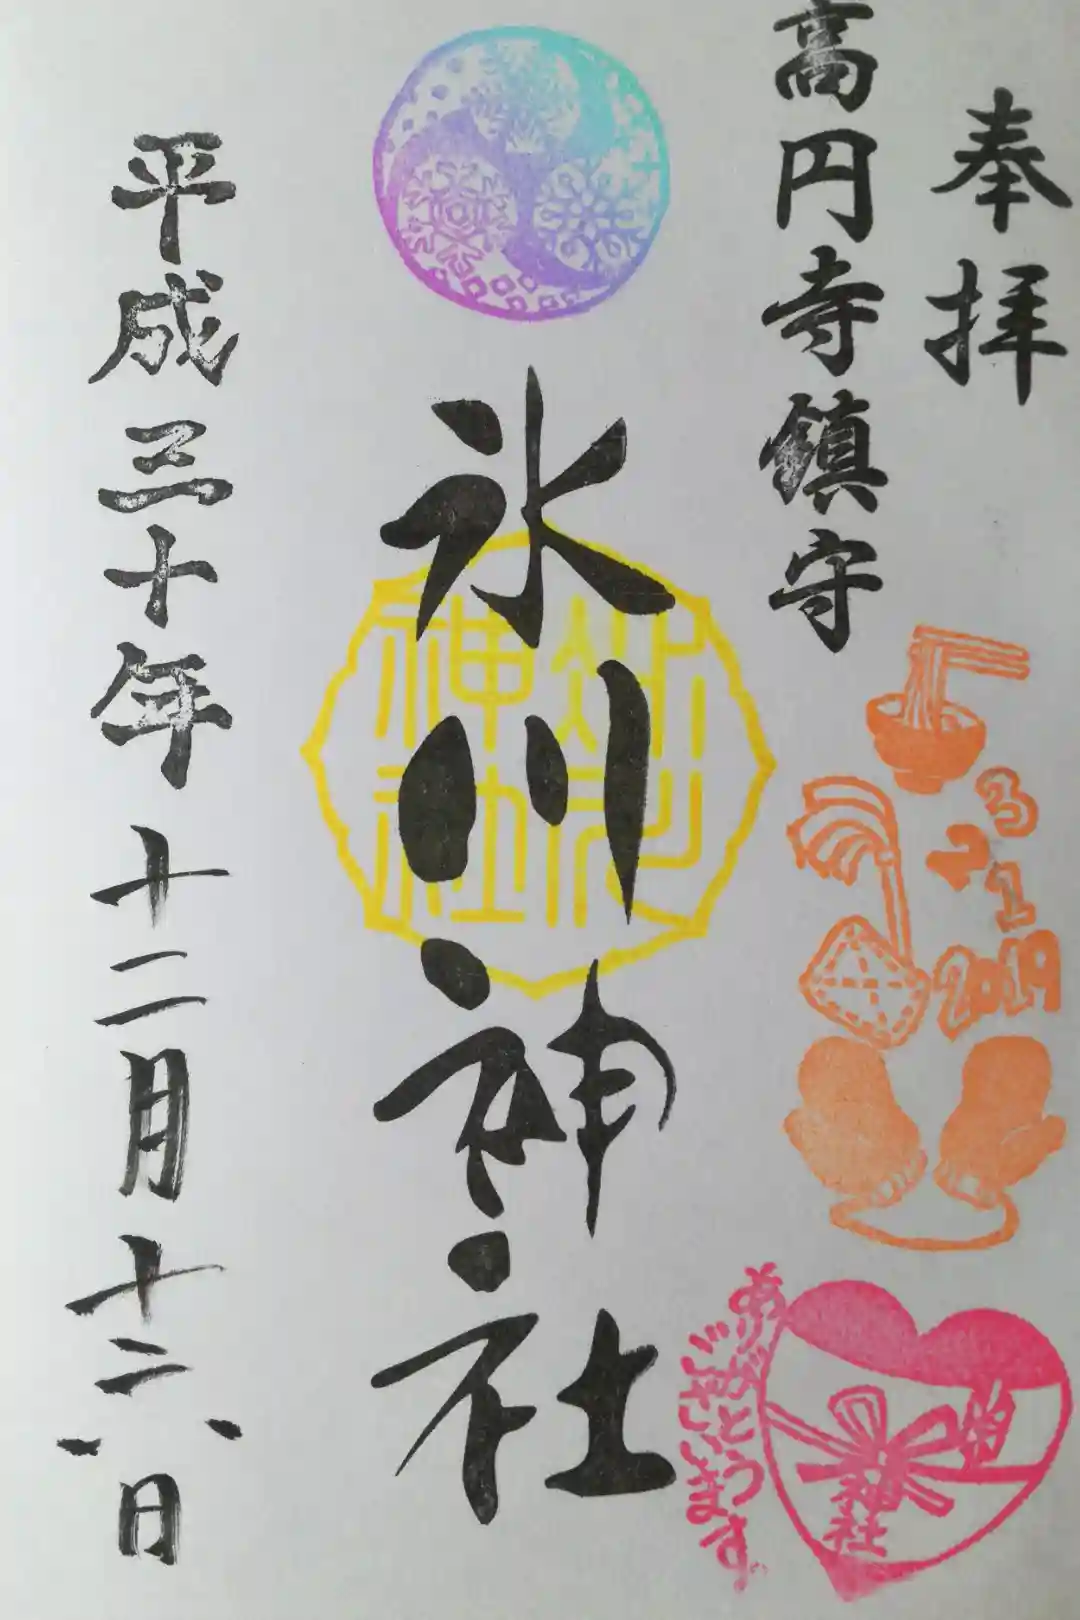 奉拝
高円寺鎮守
氷川神社
平成三十年十二月十二日
3
2
1
2019
ありがとう
ございます
神社